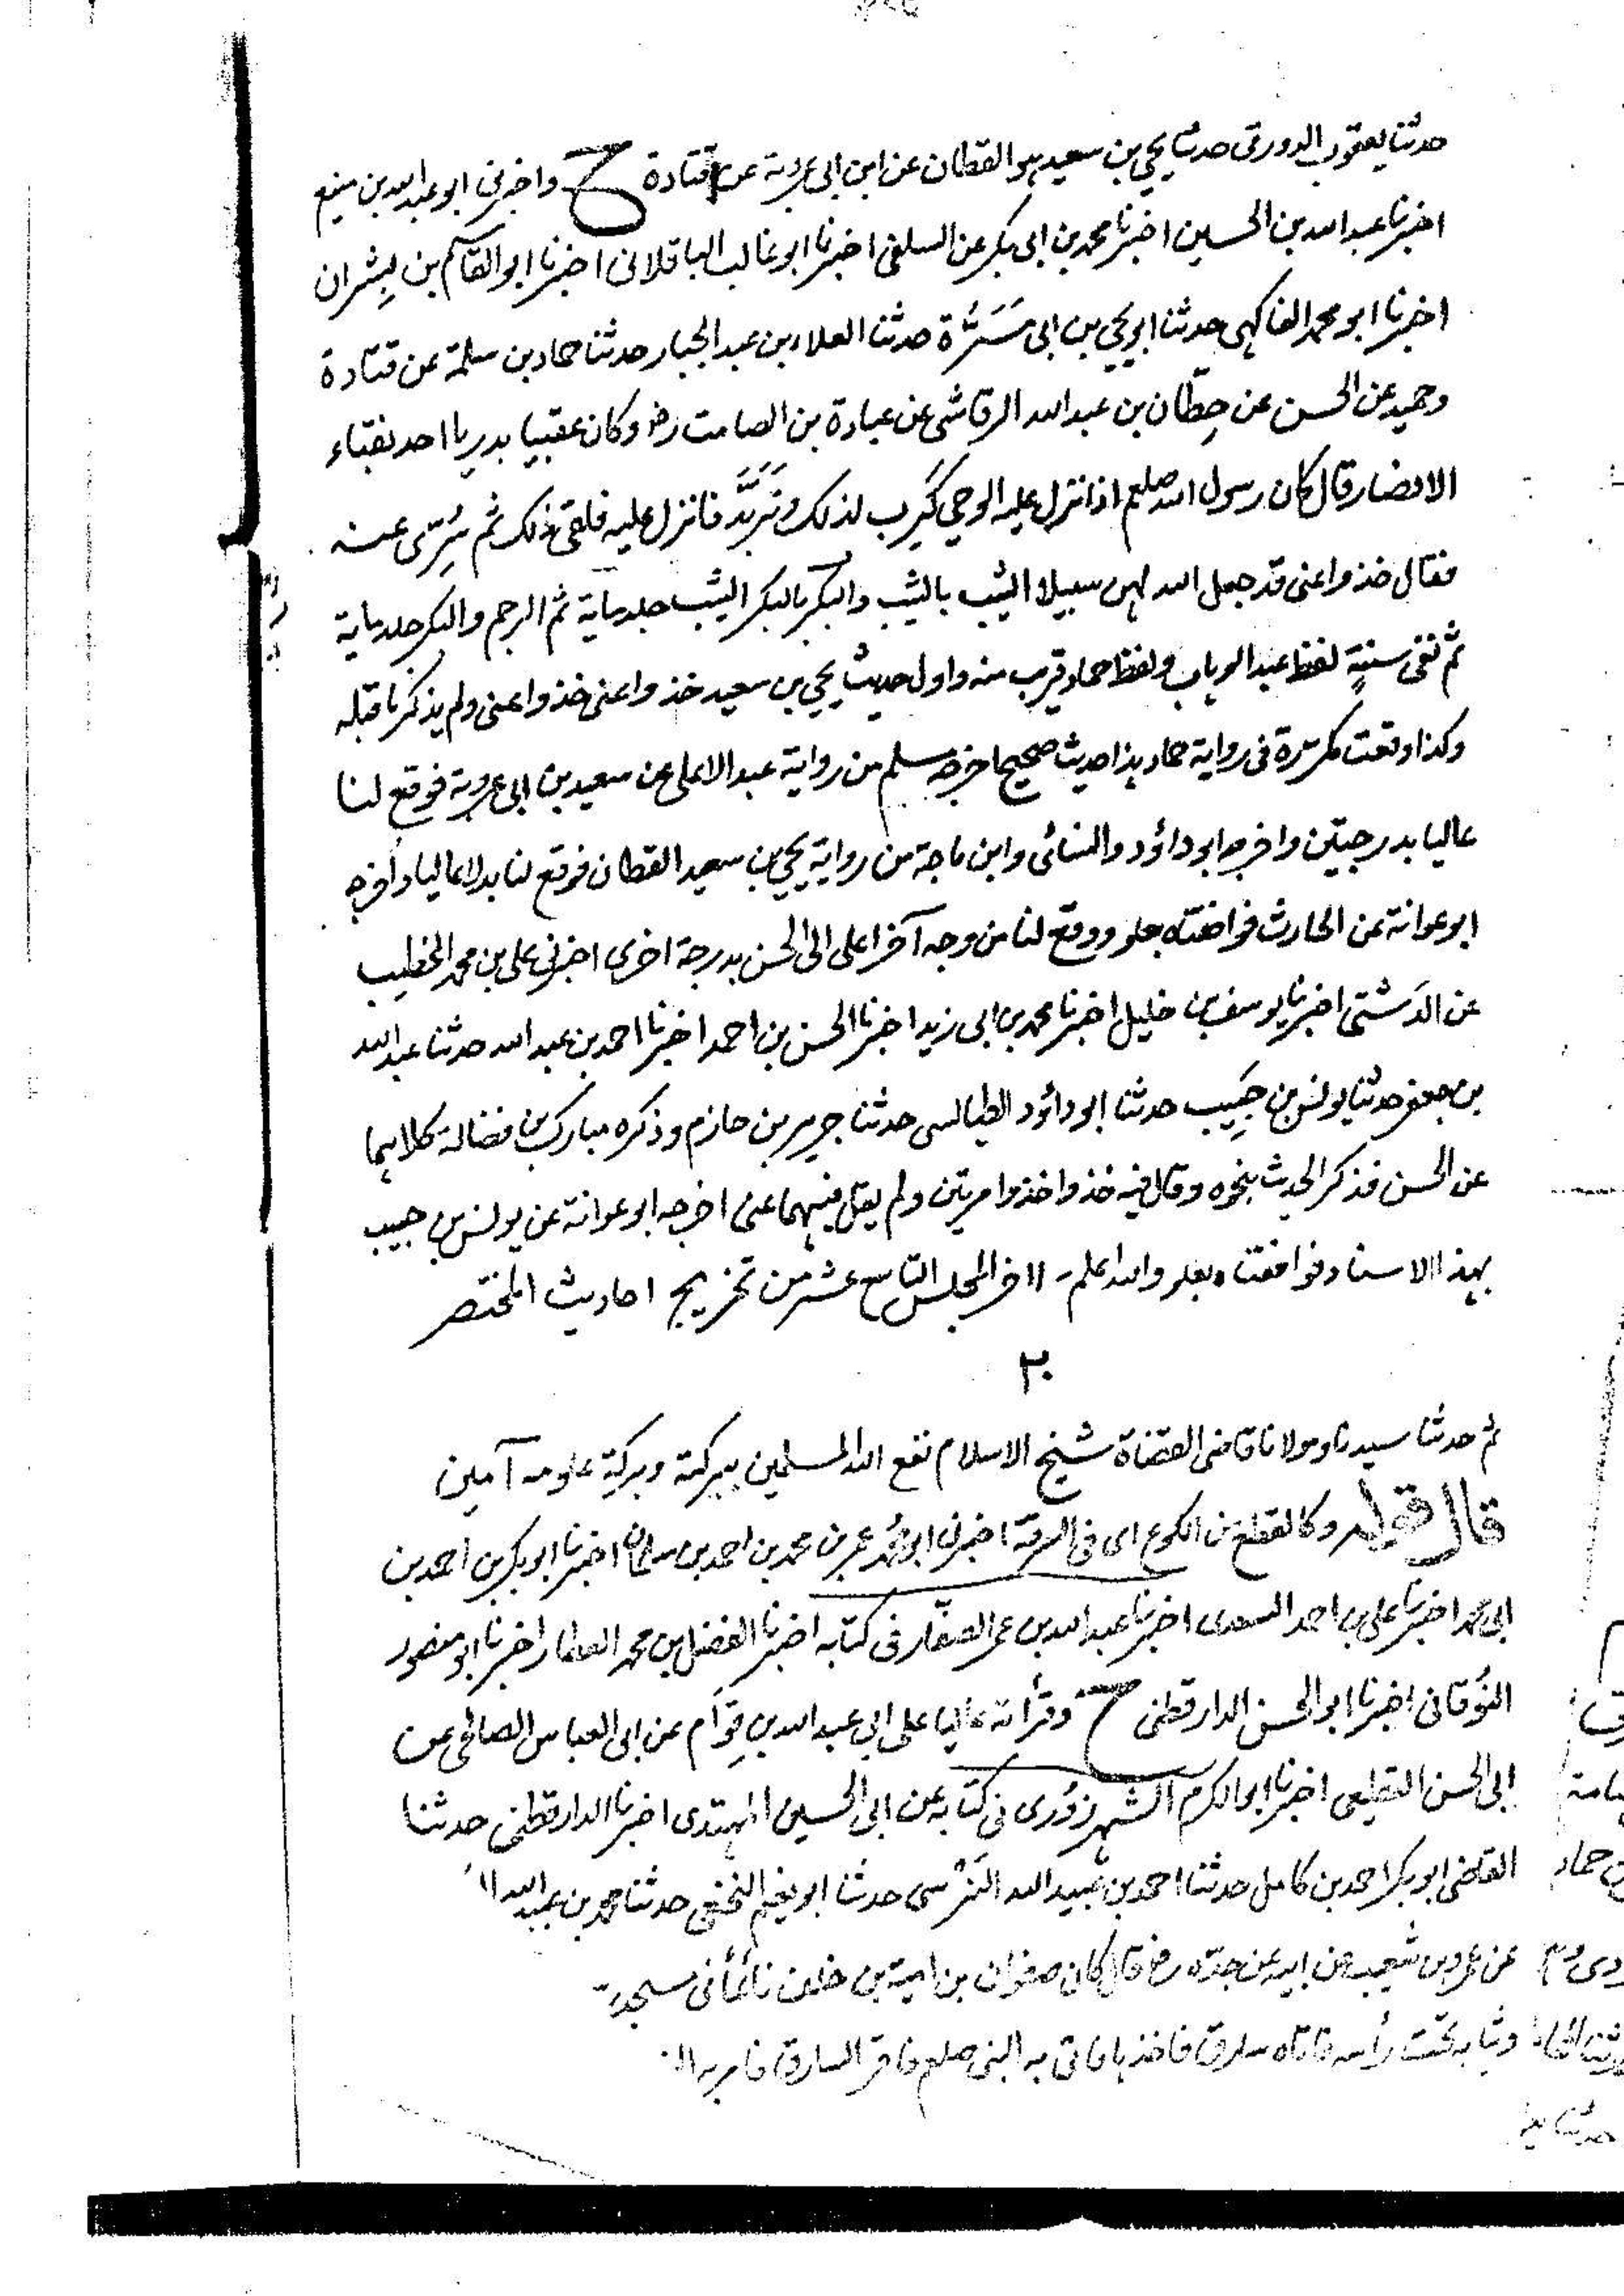 حدثنا يعقوب الدورقى حدثنا يحيى بن سعيد هو القطان عن ابن ابى عروبة عن قتادة ح واخبرنى ابو عبد الله بن منيع
اخبرنا عبد الله بن الحسين اخبرنا محمد بن ابى بكر عن السلفى اخبرنا ابو غالب الباقلانى اخبرنا ابو القاسم بن بِشران
اخبرنا ابو محمد الفاكهى حدثنا ابو يحيى بن ابى مَسَرَّة حدثنا العلاء بن عبد الجبار حدثنا حماد بن سلمة عن قتادة
وحميد عن الحسن عن حِطّان بن عبد الله الرقاشى عن عبادة بن الصامت رض وكان عقبيا بدريا احد نقباء
الانصار قال كان رسول الله صلعم اذا نزل عليه الوحي كُرِب لذلك وتَرَبَّدَ فانزل عليه فلقى ذلك ثم سُرِّى عنه
فقال خذوا عنى قد جعل الله لهن سبيلا الثيب بالثيب والبكر بالبكر الثيب جلد ماية ثم الرجم والبكر جلد ماية
ثم نفى سنةٍ لفظ عبد الوهاب ولفظ حماد قريب منه واول حديث يحيى بن سعيد خذوا عنى خذوا عنى ولم يذكر ما قبله
وكذا وقعت مكررة فى رواية حماد هذا حديث صحيح اخرجه مسلم من رواية عبد الاعلى عن سعيد بن ابى عروبة فوقع لنا
عاليا بدرجتين واخرجه ابو داؤد والنسائى وابن ماجة من رواية يحيى بن سعيد القطان فوقع لنا بدلا عاليا واخرجه
ابو عوانة عن الحارث فوافقناه بعلو ووقع لنا من وجه آخر اعلى الى الحسن بدرجة اخرى اخبرنى على بن محمد الخطيب
عن الدَشتى اخبرنا يوسف بن خليل اخبرنا محمد بن ابى زيد اخبرنا الحسن بن احمد اخبرنا احمد بن عبد الله حدثنا عبد الله
بن جعفر حدثنا يونس بن حَبِيب حدثنا ابو داؤد الطيالسى حدثنا جرير بن حازم وذكره مبارك بن فضالة كلاهما
عن الحسن فذكر الحديث بنحوه وقال فيه خذوا خذوا مرتين ولم يقل فيهما عنى اخرجه ابو عوانة عن يونس بن حبيب
بهذا الاسناد فوافقناه بعلو والله اعلم - اخر المجلس التاسع عشر من تخريج احاديث المختصر
٢٠
ثم حدثنا سيدنا ومولانا قاضى القضاة شيخ الاسلام نفع الله المسلمين ببركته وبركة علومه آمين
قال قوله وكالقطع من الكوع اى فى السرقة اخبرنى ابو محمد عمر بن محمد بن احمد بن سلمان اخبرنا ابو بكر بن احمد بن
ابى محمد اخبرنا على بن احمد السعدى اخبرنا عبد الله بن عمر الصفّار فى كتابه اخبرنا الفضل بن محمد العطار اخبرنا ابو منصور
النُوقانى اخبرنا ابو الحسن الدارقطنى ح وقرأته عاليا على ابى عبد الله بن قِوَام عن ابى العباس الصالحى عن
ابى الحسن القطيعى اخبرنا ابو الكرم الشهرزُورى فى كتابه عن ابى الحسين المهتدى اخبرنا الدارقطنى حدثنا
القاضى ابو بكر احمد بن كامل حدثنا احمد بن عبيد الله النَرْسى حدثنا ابو نعيم النخعى حدثنا محمد بن عبيد الله
عن عمرو بن شعيب عن ابيه عن جدّه رض قال كان صفوان بن امية بن خلف نائماً فى مسجد
وثيابه تحت رأسه فاتاه سارق فاخذها فاتى به النبى صلعم فاقر السارق فامر به